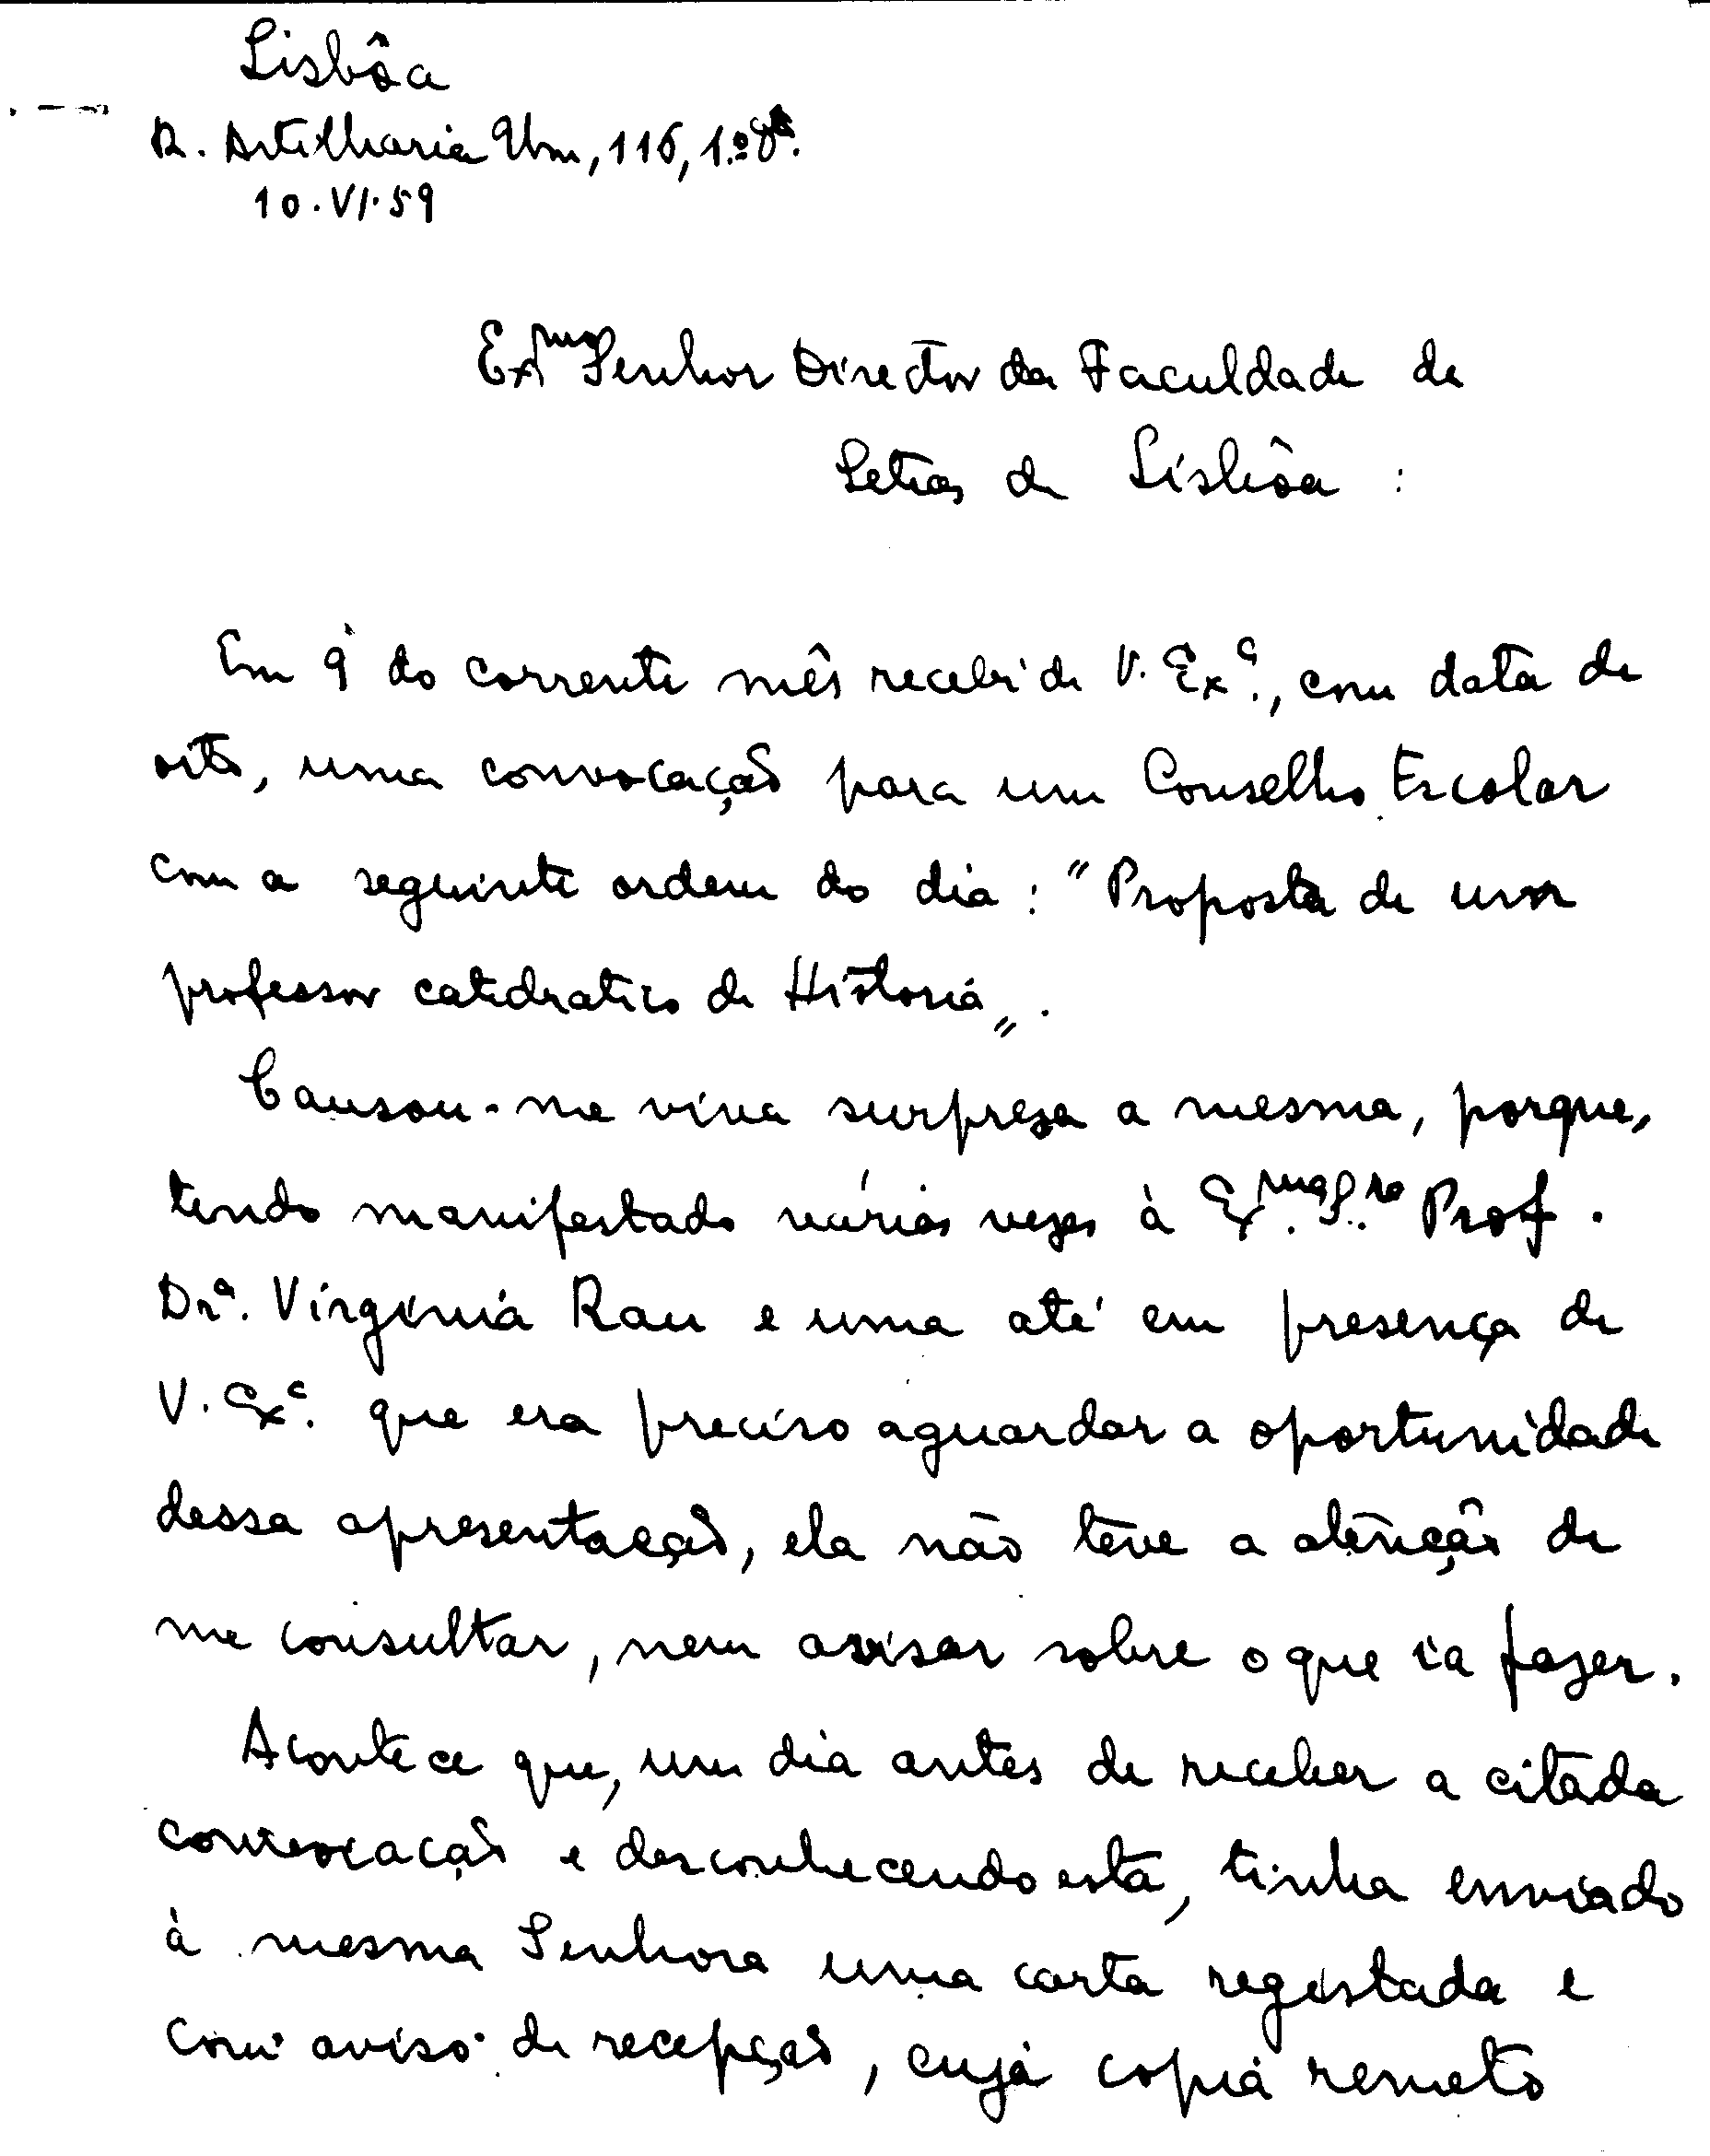 Lisbôa
R. Artilharia Um, 116, 1.º
10.VI.59
Exmo Senhor Director da Faculdade de
Letras de Lisbôa :
Em 9 do corrente mês recebi de V. Exª., com data de
oito, uma convocação para um Conselho Escolar
com a seguinte ordem do dia : "Proposta de um
professor catedratico de Historia".
Causou-me viva surpresa a mesma, porque,
tendo manifestado várias vezes à Exma. Sra. Prof.
Drª. Virginia Rau e uma até em presença de
V. Exª. que era preciso aguardar a oportunidade
dessa apresentação, ela não teve a atenção de
me consultar, nem avisar sobre o que ia fazer.
Acontece que, um dia antes de receber a citada
convocação e desconhecendo esta, tinha enviado
à mesma Senhora uma carta registada e
com aviso de recepção, cuja copia remeto